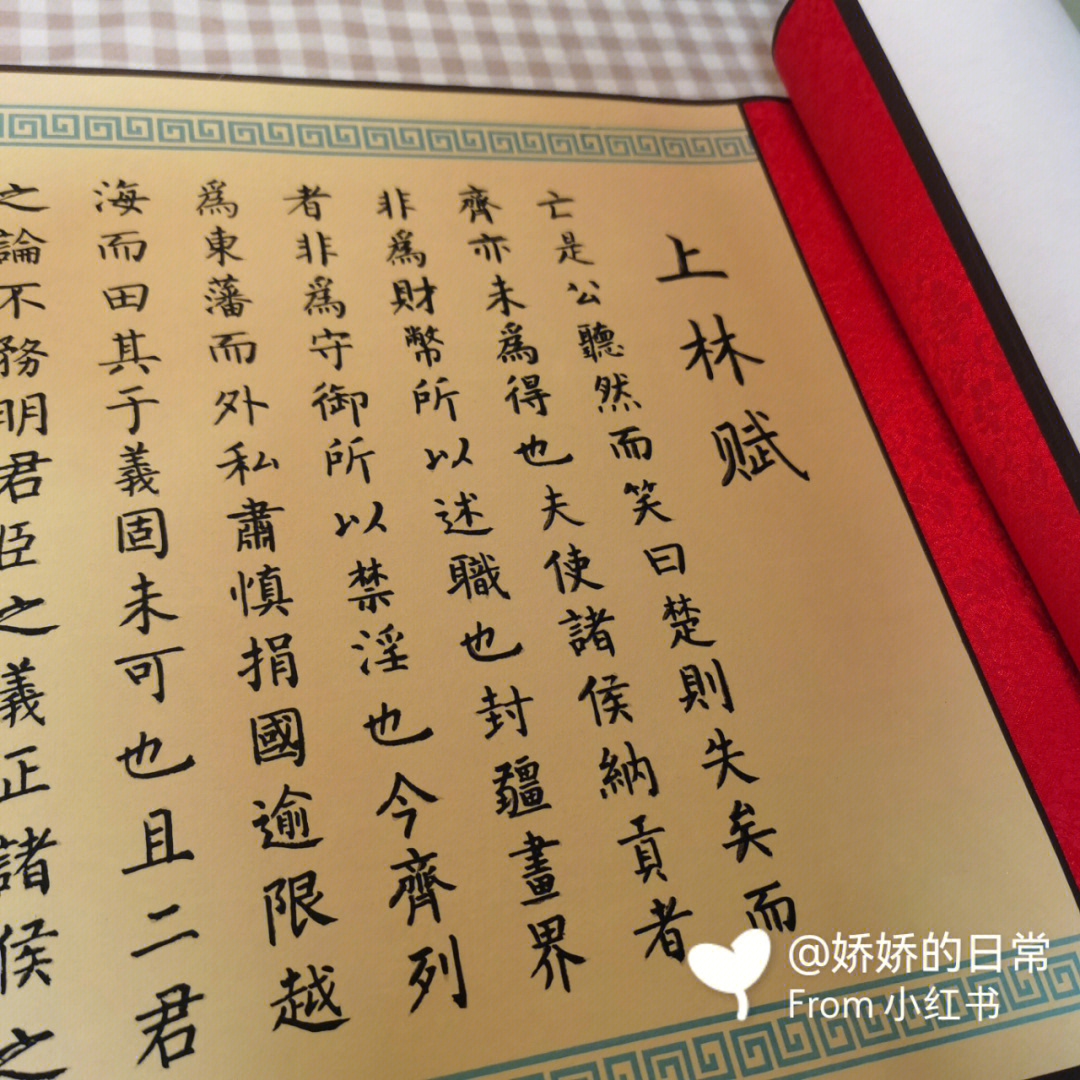 上林赋
亡是公聽然而笑曰楚則失矣而
齊亦未爲得也夫使諸侯納貢者
非爲財幣所以述職也封疆畫界
者非爲守御所以禁淫也今齊列
爲東藩而外私肅慎捐國逾限越
海而田其于義固未可也且二君
之論不務明君臣之義正諸侯之
@娇娇的日常
From 小红书